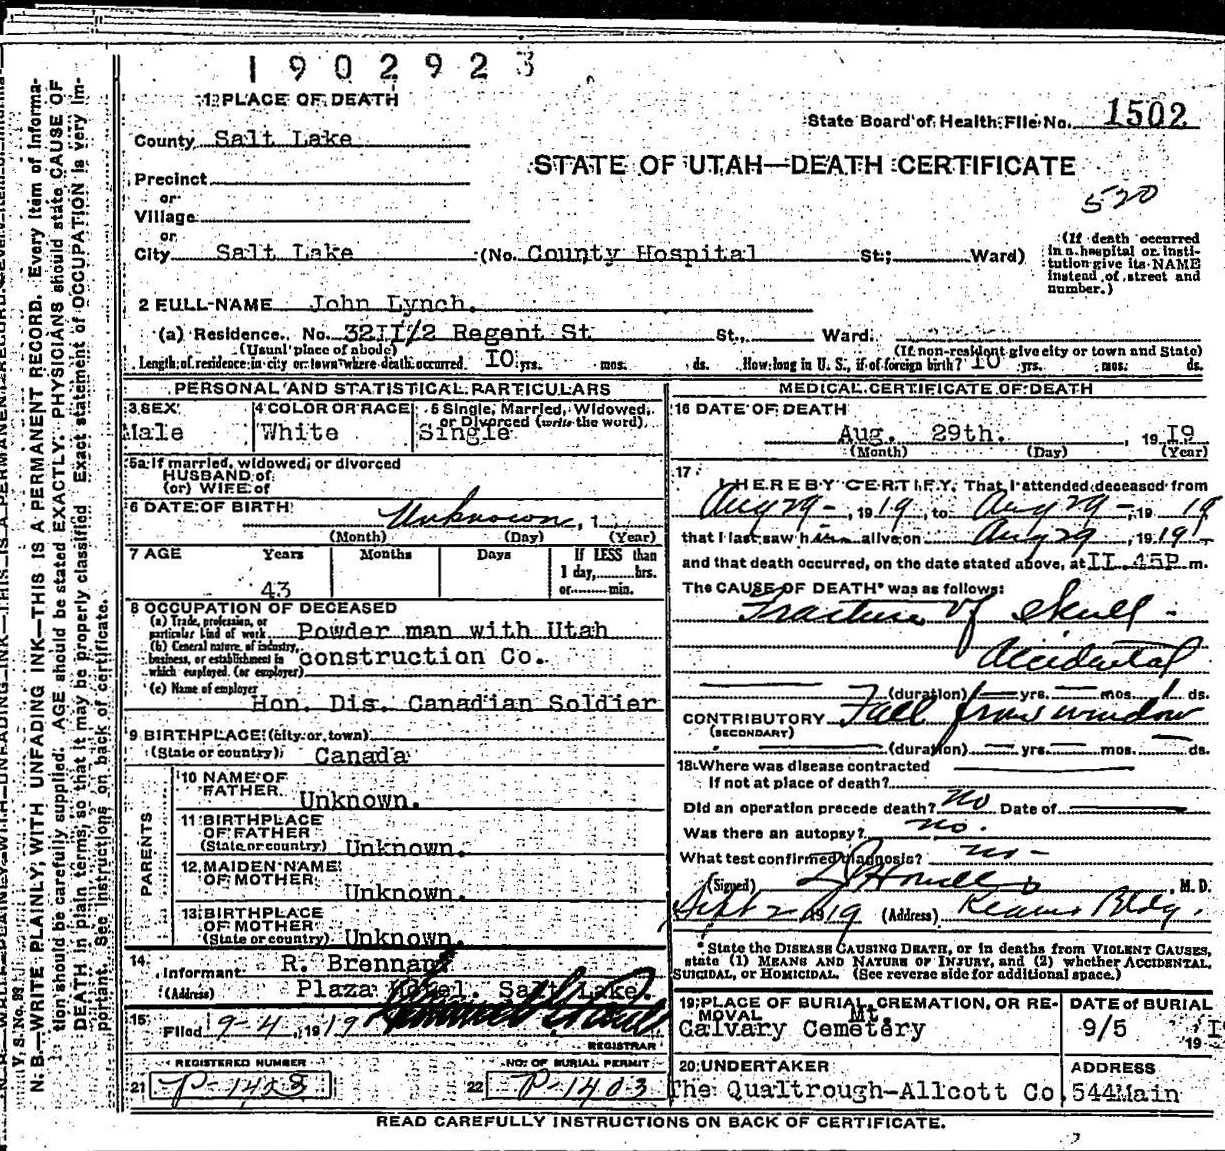 1902923
1 PLACE OF DEATH
State Board of Health File No. 1502
County Salt Lake
STATE OF UTAH—DEATH CERTIFICATE
Precinct
or
Village
520
or
City Salt Lake (No. County Hospital St.; Ward)
(If death occurred
in a hospital or insti-
tution give its NAME
instead of street and
number.)
2 FULL NAME John Lynch.
(a) Residence. No. 32II/2 Regent St St., Ward.
(Usual place of abode) (If non-resident give city or town and State)
Length of residence in city or town where death occurred IO yrs. mos. ds. How long in U. S., if of foreign birth? IO yrs. mos. ds.
PERSONAL AND STATISTICAL PARTICULARS
3 SEX 4 COLOR OR RACE 5 Single, Married, Widowed,
or Divorced (write the word)
Male White Single
5a If married, widowed, or divorced
HUSBAND of
(or) WIFE of
6 DATE OF BIRTH Unknown, 1
(Month) (Day) (Year)
7 AGE Years Months Days If LESS than
1 day, hrs.
or min.
43
8 OCCUPATION OF DECEASED
(a) Trade, profession, or
particular kind of work Powder man with Utah
(b) General nature of industry,
business, or establishment in
which employed (or employer) construction Co.
(c) Name of employer
Hon. Dis. Canadian Soldier
9 BIRTHPLACE (city or town)
(State or country) Canada
PARENTS
10 NAME OF
FATHER Unknown.
11 BIRTHPLACE
OF FATHER
(State or country) Unknown.
12 MAIDEN NAME
OF MOTHER
Unknown.
13 BIRTHPLACE
OF MOTHER
(State or country) Unknown.
14
Informant R. Brennan
(Address) Plaza Hotel, Salt Lake.
15
Filed 9-4, 1919
REGISTRAR
REGISTERED NUMBER NO. OF BURIAL PERMIT
21 P-1403 22 P-1403
MEDICAL CERTIFICATE OF DEATH
16 DATE OF DEATH
Aug. 29th. , 19I9
(Month) (Day) (Year)
17
I HEREBY CERTIFY, That I attended deceased from
Aug 29-, 1919, to Aug 29-, 1919
that I last saw him alive on Aug 29, 1919
and that death occurred, on the date stated above, at II.45P m.
The CAUSE OF DEATH* was as follows:
Fracture of Skull -
Accidental
(duration) — yrs. — mos. 1 ds.
CONTRIBUTORY Fall from window
(SECONDARY)
(duration) — yrs. — mos. — ds.
18 Where was disease contracted
If not at place of death?
Did an operation precede death? no Date of
Was there an autopsy? no.
What test confirmed diagnosis? no -
(Signed) , M. D.
Sept 2 1919 (Address) Kearns Bldg.
*State the DISEASE CAUSING DEATH, or in deaths from VIOLENT CAUSES,
state (1) MEANS AND NATURE OF INJURY, and (2) whether ACCIDENTAL,
SUICIDAL, or HOMICIDAL. (See reverse side for additional space.)
19 PLACE OF BURIAL, CREMATION, OR RE-
MOVAL Mt.
Calvary Cemetery
DATE OF BURIAL
9/5 19 I
20 UNDERTAKER
The Qualtrough-Allcott Co
ADDRESS
544Main
READ CAREFULLY INSTRUCTIONS ON BACK OF CERTIFICATE.
V. S. No. 98
N. B.—WRITE PLAINLY, WITH UNFADING INK—THIS IS A PERMANENT RECORD. Every item of informa-
tion should be carefully supplied. AGE should be stated EXACTLY. PHYSICIANS should state CAUSE OF
DEATH in plain terms, so that it may be properly classified. Exact statement of OCCUPATION is very im-
portant. See instructions on back of certificate.